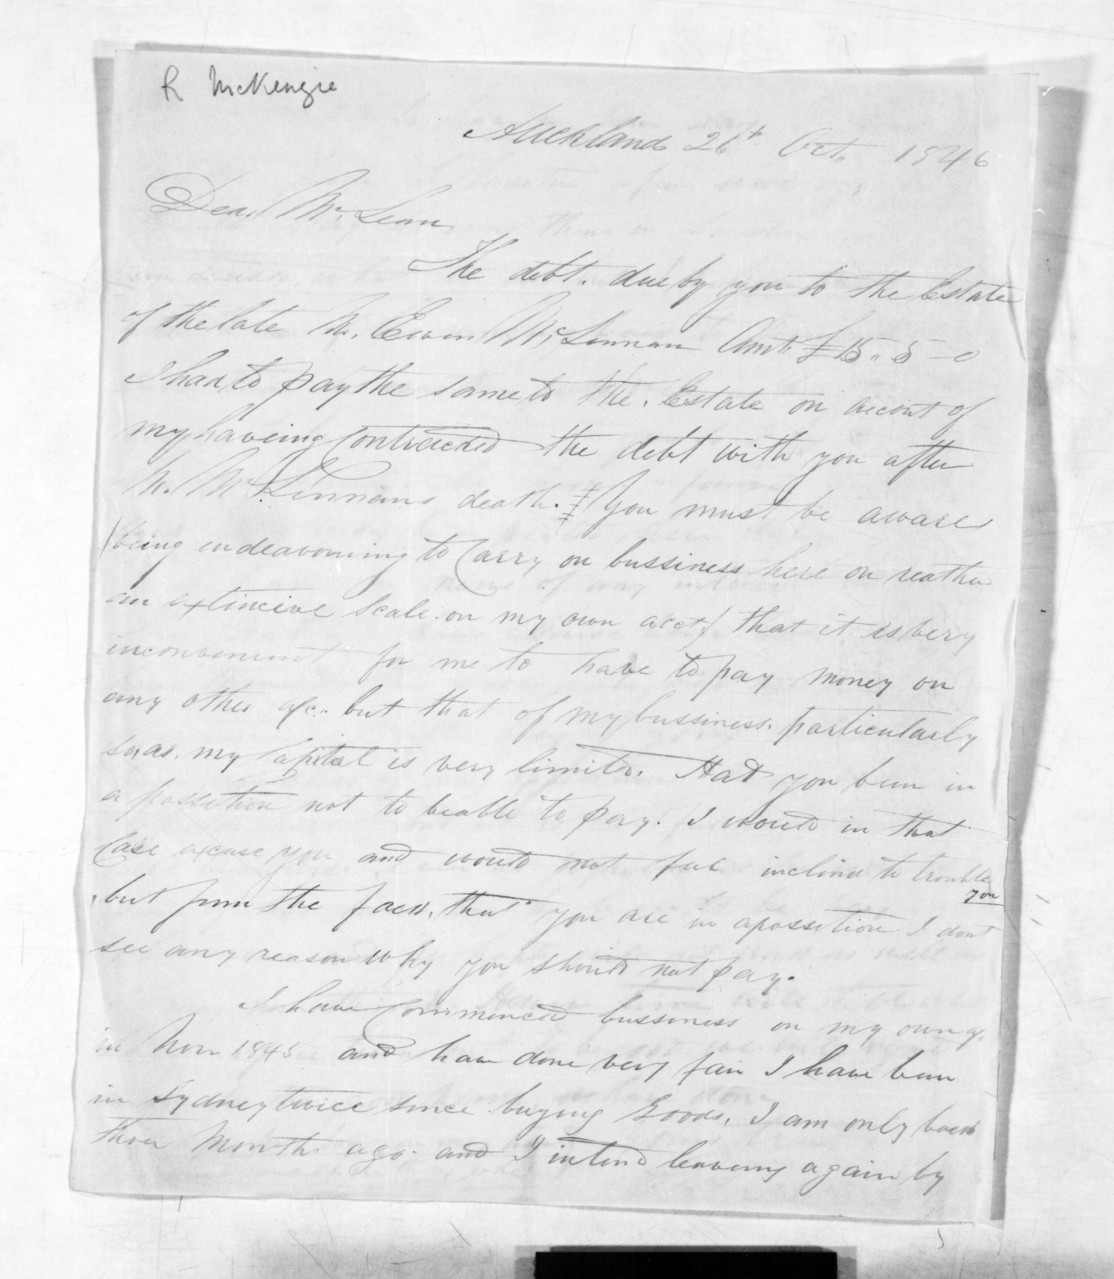 R McKenzie
Auckland 26th Oct. 1846
Dear Mr. Lean
The debt. due by you to the Estate
of the late Mr. Ewen McLennan Amt. £15. 5 - 0
I has to pay the same to the. Estate on account of
my haveing Contracted the debt with you after
Mr. McLennans death. You must be aware
(being endeavouring to Carry on bussiness here on reather
an extincive Scale. on my own acct) that it is very
inconvenient for me to have to pay money on
any other a/c. but that of my bussiness. particularly
so as. my Capital is very limited. Had you been in
a possetion not to be able to pay. I would in that
Case excuse you and would not feel inclind to trouble
you
but from the fact, that you are in a possetion I dont
see any reason Why you should not pay.
I have Commenced bussiness on my own a/c
in Novr 1845 and have done very fair I have been
in Sydney twice since buying Goods, I am only back
three Month ago. and I intend leaveing again by